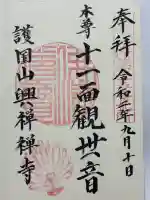 奉拝
令和二年九月十日
本尊
十一面観世音
護国山興禅禅寺